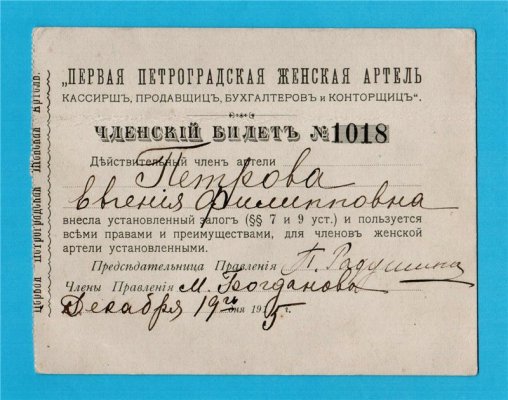 „ПЕРВАЯ ПЕТРОГРАДСКАЯ ЖЕНСКАЯ АРТЕЛЬ
КАССИРШЪ, ПРОДАВЩИЦЪ, БУХГАЛТЕРОВЪ и КОНТОРЩИЦЪ“.
ЧЛЕНСКІЙ БИЛЕТЪ №1018
Дѣйствительный членъ артели
Петрова
Евгенія Филипповна
внесла установленный залогъ (§§ 7 и 9 уст.) и пользуется
всѣми правами и преимуществами, для членовъ женской
артели установленными.
Предсѣдательница Правленія П. Радушина
Члены Правленія М. Богданова
Декабря 19го дня 1915 г.
Первая Петроградская Женская Артель.